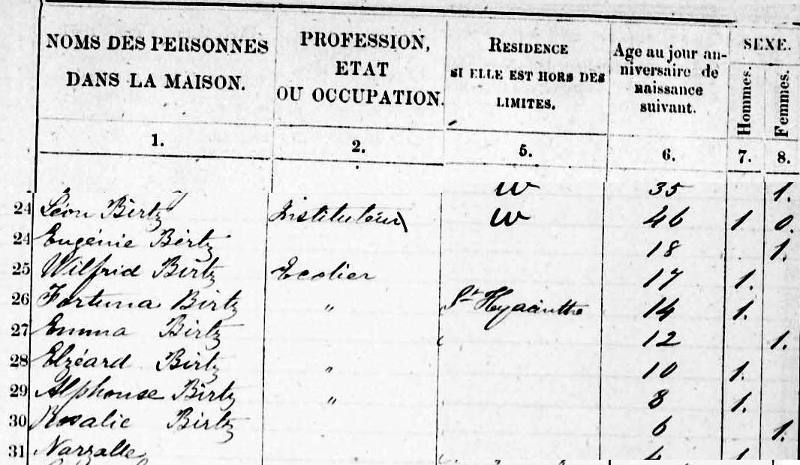 NOMS DES PERSONNES DANS LA MAISON. PROFESSION, ETAT OU OCCUPATION. RESIDENCE SI ELLE EST HORS DES LIMITES. Age au jour anniversaire de naissance suivant. SEXE. Hommes. Femmes.
1. 2. 5. 6. 7. 8.
W 35 1.
24 Léon Birtz Instituteur W 46 1. 0.
24 Eugénie Birtz 18 1.
25 Wilfrid Birtz Ecolier 17 1.
26 Fortuna Birtz " St Hyacinthe 14 1.
27 Emma Birtz 12 1.
28 Elzéard Birtz " 10 1.
29 Alphonse Birtz " 8 1.
30 Rosalie Birtz 6 1.
31